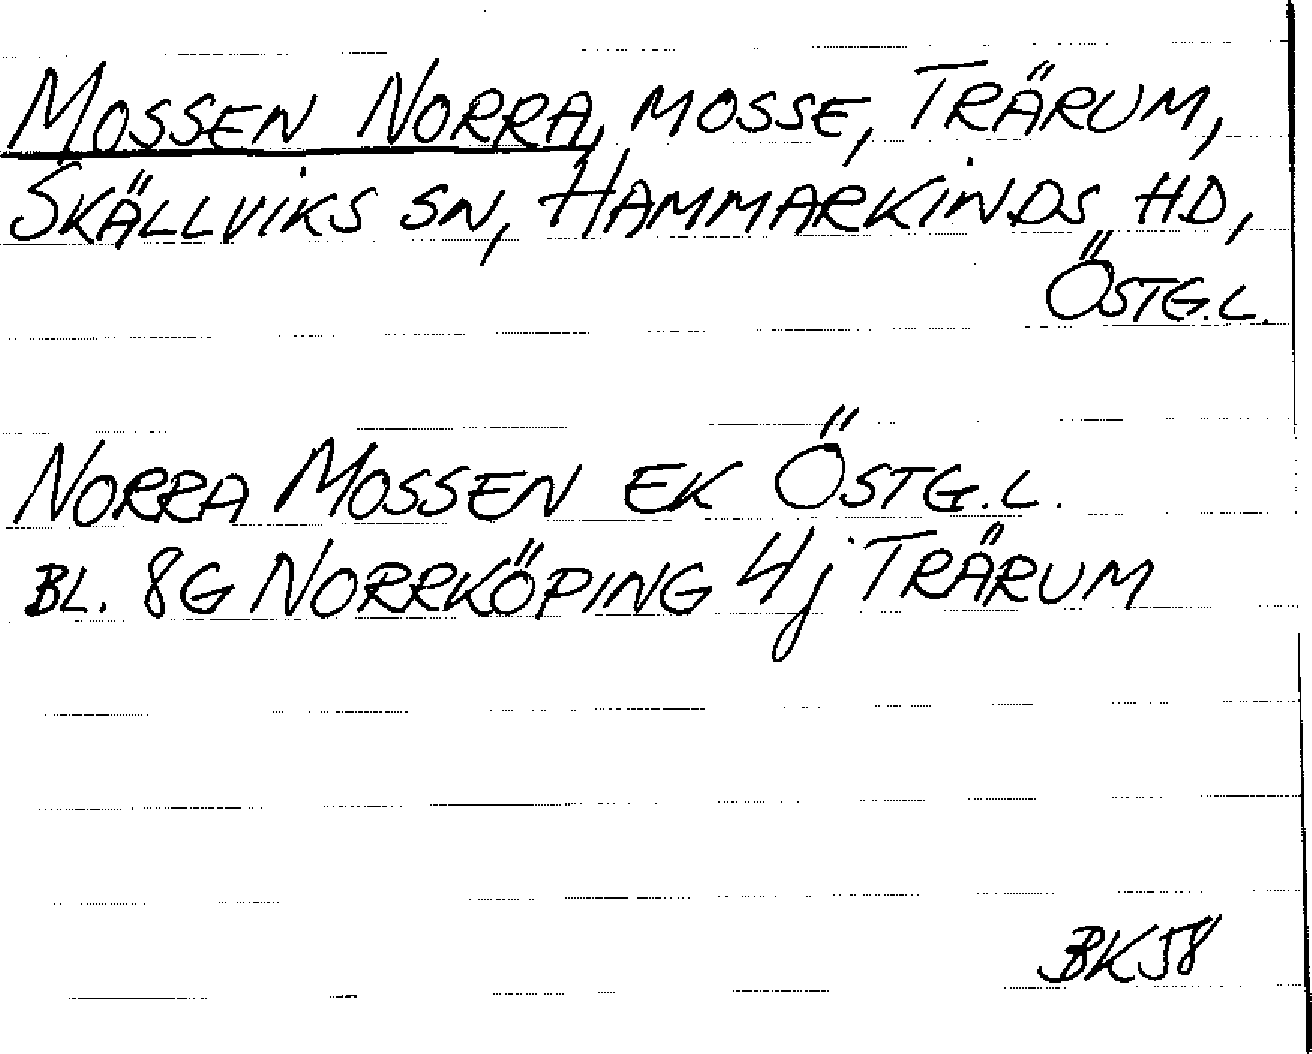 MOSSEN NORRA, MOSSE, TRÄRUM,
SKÄLLVIKS SN, HAMMARKINDS HD,
ÖSTG.L.
NORRA MOSSEN EK ÖSTG.L.
BL. 8G NORRKÖPING 4j TRÅRUM
BK58